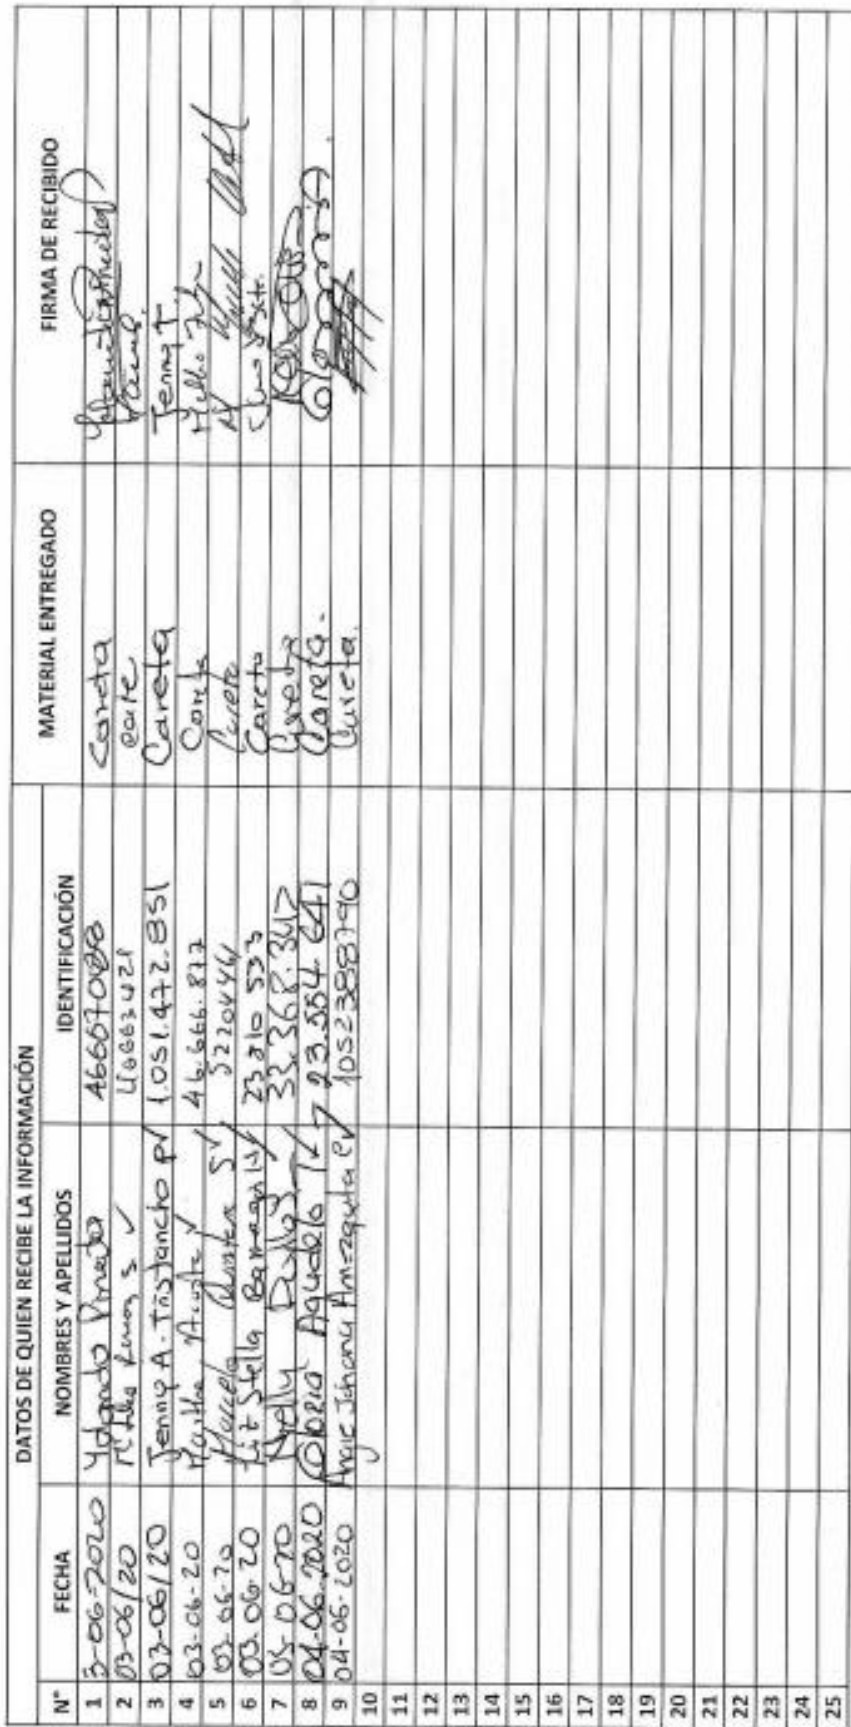 DATOS DE QUIEN RECIBE LA INFORMACIÓN
N° FECHA NOMBRES Y APELLIDOS IDENTIFICACIÓN MATERIAL ENTREGADO FIRMA DE RECIBIDO
1 3-06-2020 46667088 Careta
2 03-06/20 46663421
3 03-06/20 Jenny A. Tristancho P 1.051.472.851 Careta Jenny T.
4 03-06-20 46.666.877
5 03-06-20 Marcela 52204461 Careta
6 03-06-20 Stella 533 Careta
7 06-20 Nelly 33.368.347 Careta
8 04-06-2020 Gloria Agudelo T 23.554.641 Careta.
9 04-06-2020 Angie Johana Amezquita C 1052388790 Careta.
10
11
12
13
14
15
16
17
18
19
20
21
22
23
24
25